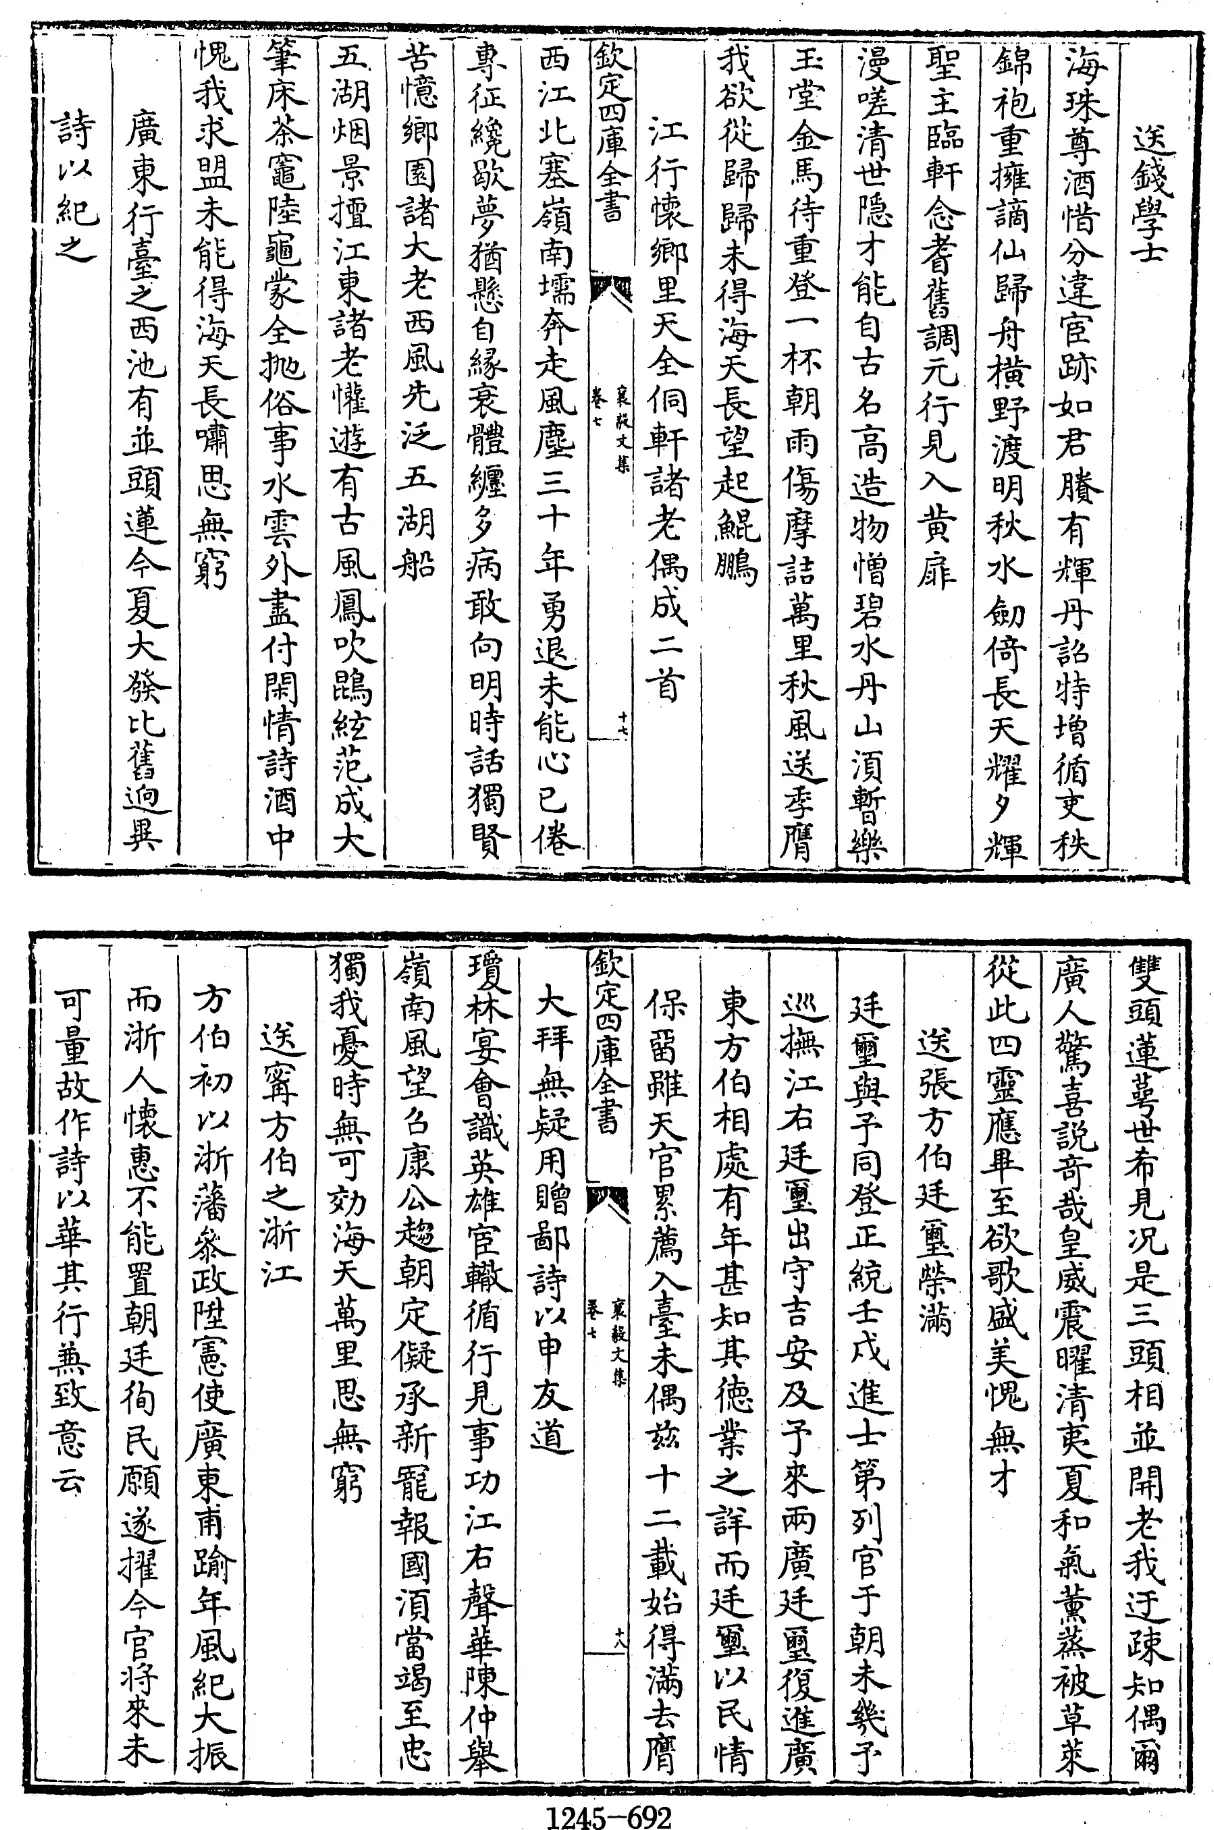 送錢學士
海珠尊酒惜分違宦跡如君賸有輝丹詔特增循吏秩
錦袍重擁謫仙歸舟橫野渡明秋水劒倚長天耀夕輝
聖主臨軒念耆舊調元行見入黄扉
漫嗟清世隠才能自古名高造物憎碧水丹山湏暫樂
玉堂金馬待重登一杯朝雨傷摩詰萬里秋風送季膺
我欲從歸歸未得海天長望起鯤鵬
江行懷鄉里天全侗軒諸老偶成二首
欽定四庫全書
襄毅文集
卷七
十七
西江北塞嶺南壖奔走風塵三十年勇退未能心已倦
專征纔歇夢猶懸自縁衰體纏多病敢向明時話獨賢
苦憶鄉園諸大老西風先泛五湖船
五湖烟景擅江東諸老懽遊有古風鳳吹鵾絃范成大
筆床茶竈陸龜蒙全抛俗事水雲外盡付閑情詩酒中
愧我求盟未能得海天長嘯思無窮
廣東行臺之西池有並頭蓮今夏大發比舊逈異
詩以紀之
雙頭蓮萼世希見况是三頭相並開老我迂疎知偶爾
廣人驚喜説竒哉皇威震曜清夷夏和氣薰蒸被草萊
從此四靈應畢至欲歌盛美愧無才
送張方伯廷璽榮滿
廷璽與予同登正統壬戌進士第列官于朝未幾予
巡撫江右廷璽出守吉安及予來兩廣廷璽復進廣
東方伯相處有年甚知其徳業之詳而廷璽以民情
保留雖天官累薦入臺未偶兹十二載始得滿去膺
欽定四庫全書
襄毅文集
卷七
十八
大拜無疑用贈鄙詩以申友道
瓊林宴會識英雄宦轍循行見事功江右聲華陳仲舉
嶺南風望召康公趨朝定儗承新寵報國湏當竭至忠
獨我憂時無可効海天萬里思無窮
送甯方伯之浙江
方伯初以浙藩叅政陞憲使廣東甫踰年風紀大振
而浙人懐惠不能置朝廷徇民願遂擢今官将來未
可量故作詩以華其行兼致意云
1245-692